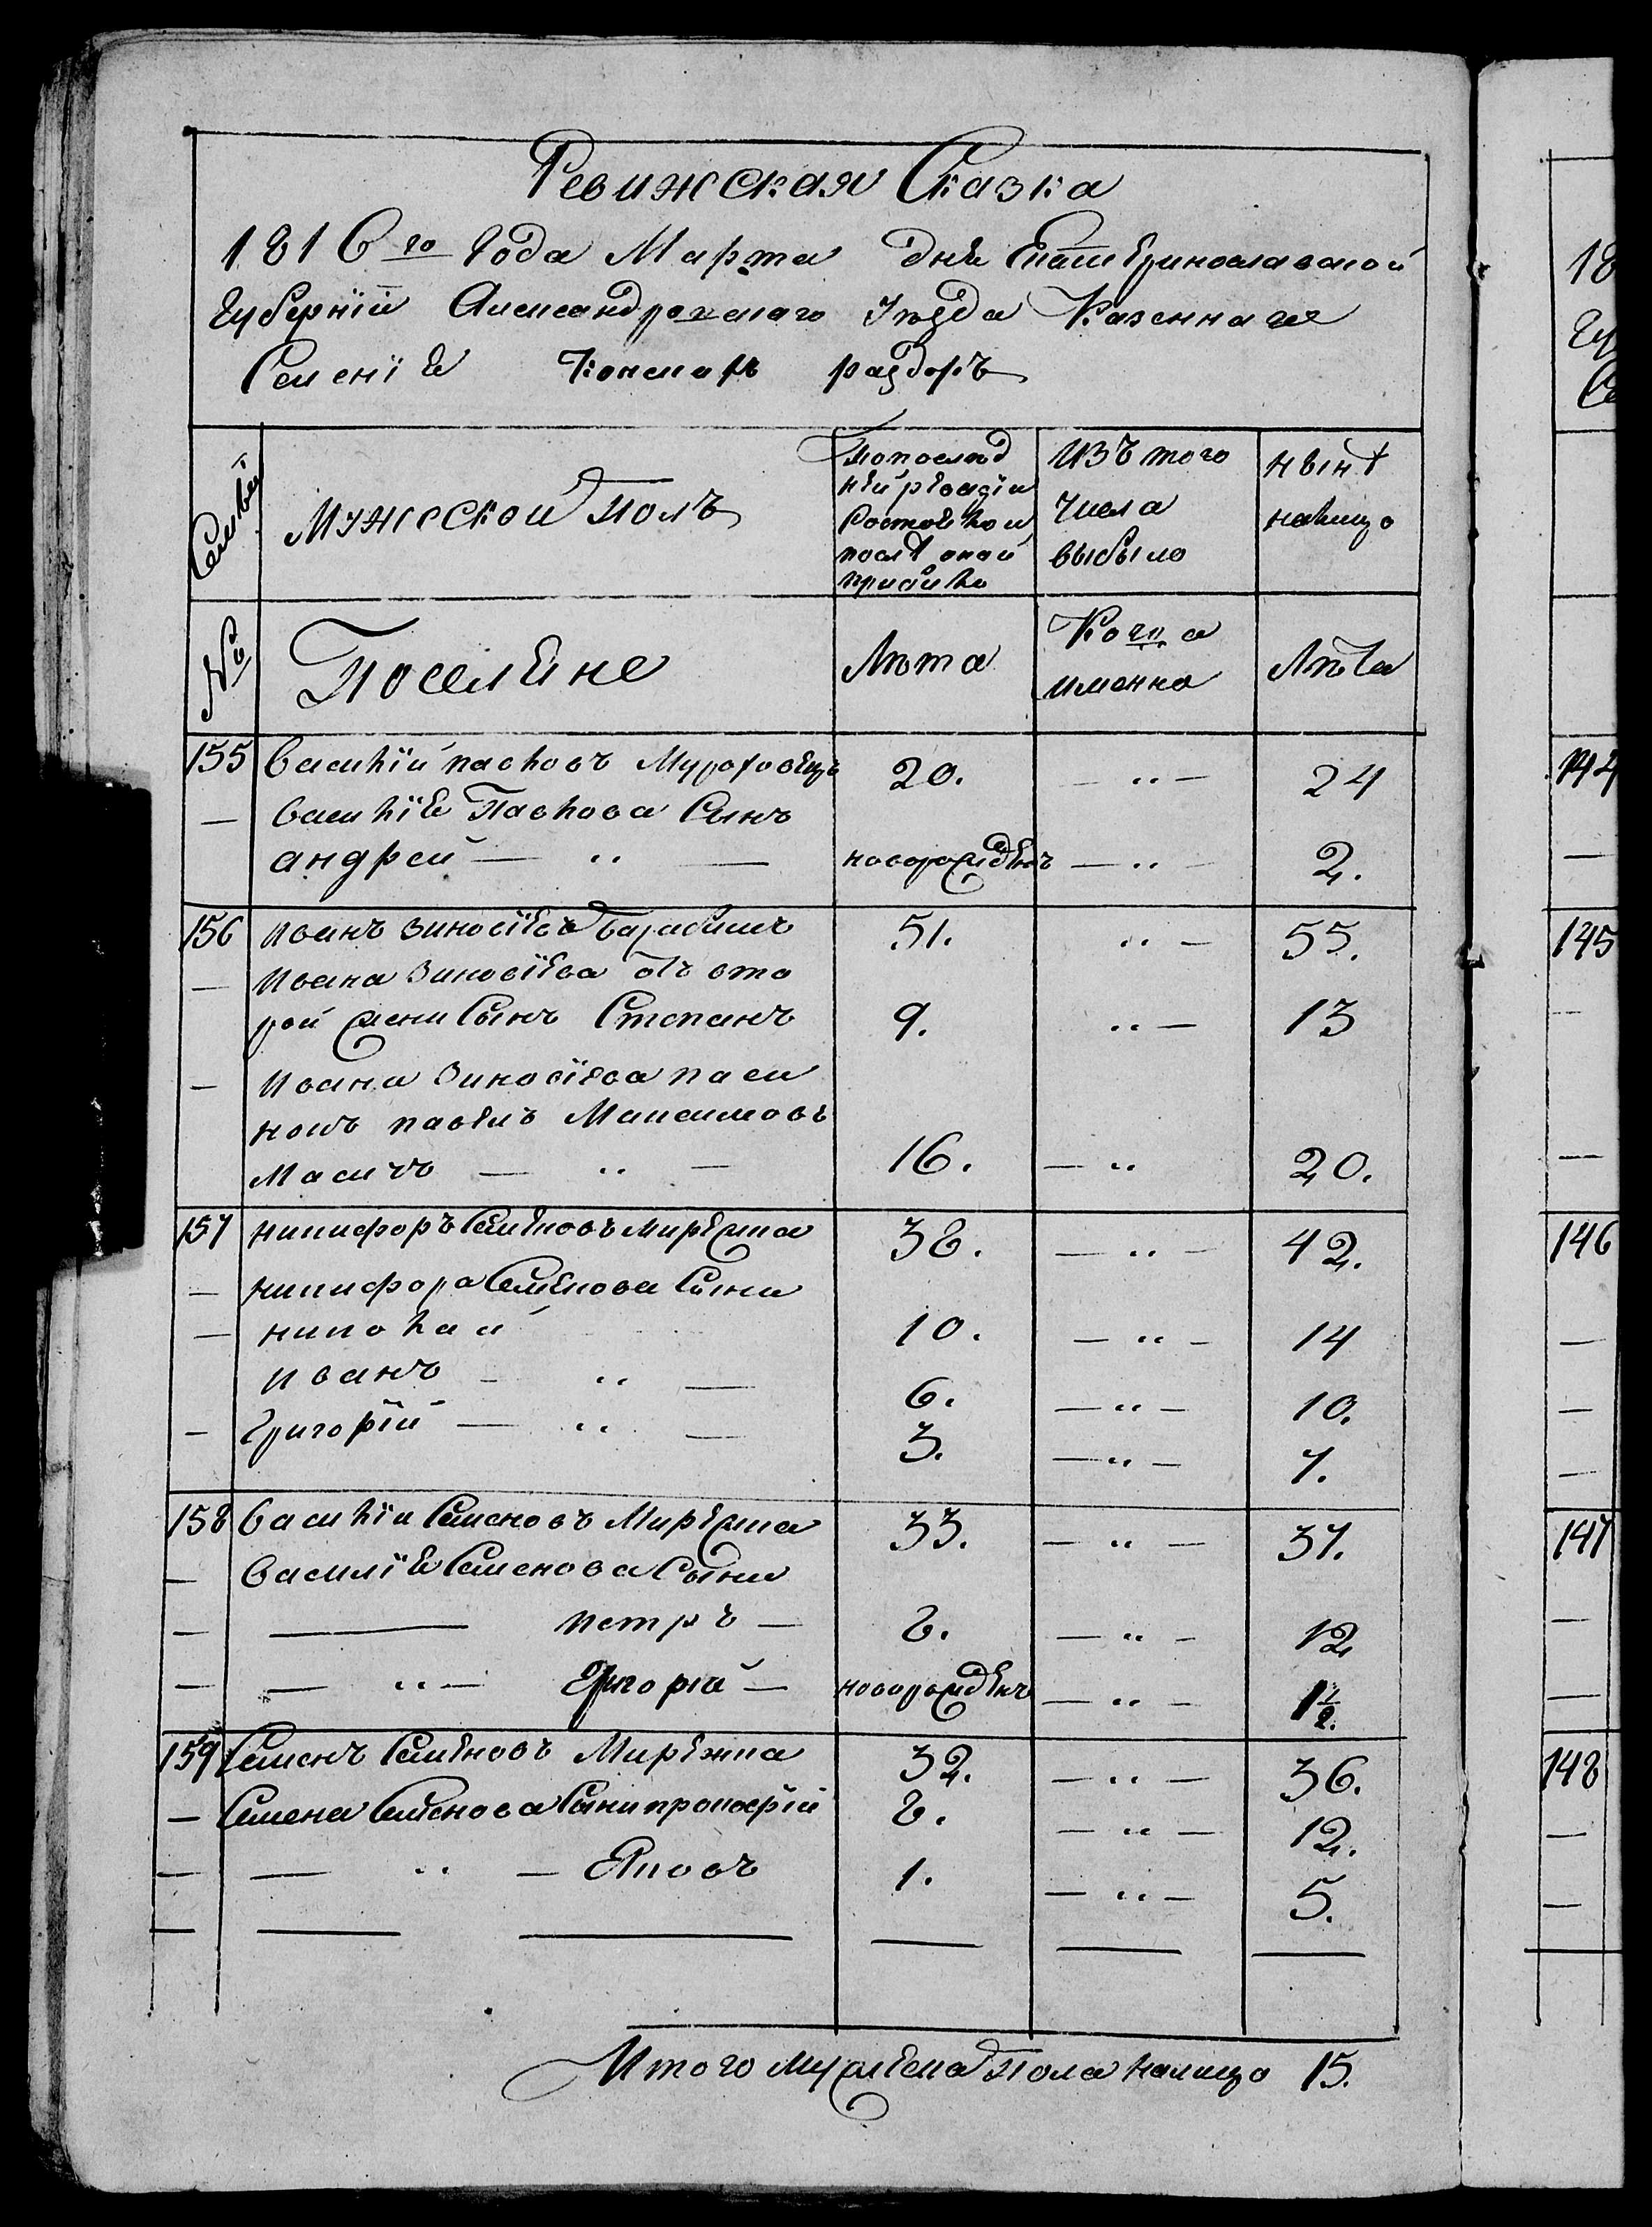 Ревижская Сказка
181 6го Года Марта дня Екатеринославской
Губернїи Александровскаго уѣзда Казеннаго
Селенїя Конскихъ раздоръ
Семьи
Мужеской полъ
попослѣд
ней ревизїи
Состояло и
послѣ оной
прибыло
Изъ того
числа
выбыло
нынѣ
налицо
№
Поселяне
Лѣта
Кого а
именно
Лѣта
155 Василїй павловъ 20. — „ — 24
— Василїя Павлова Сынъ
андрей — „ — новорожденъ — „ — 2.
156 Иванъ Зиновїевъ Барабашъ 51. „ — 55.
— Ивана Зиновїева отъ вто
рой жени Сынъ Степанъ 9. „ — 13
— Ивана Зиновїева паси
нокъ павелъ Максимовъ
Масичъ — „ — 16. — „ 20.
157 никифоръ Семеновъ Мирежка 38. — „ — 42.
— никифора Семенова Сыни
— николай 10. — „ — 14
иванъ — „ — 6. — „ — 10.
— Григорїй — „ — 3. — „ — 7.
158 Василїй Семеновъ Мирежка 33. — „ — 37.
— Василїя Семенова Сыни
— — петръ — 8. — „ — 12
— — „ — Григорїй — новорожденъ — „ — 1 1/2.
159 Семенъ Семеновъ Мирежка 32. — „ — 36.
— Семена Семенова Сыни прокофїй 8. — „ — 12.
— — „ — Яковъ 1. — „ — 5.
Итого мужеска пола налицо 15.
18
Гу
Се
144
145
146
147
148